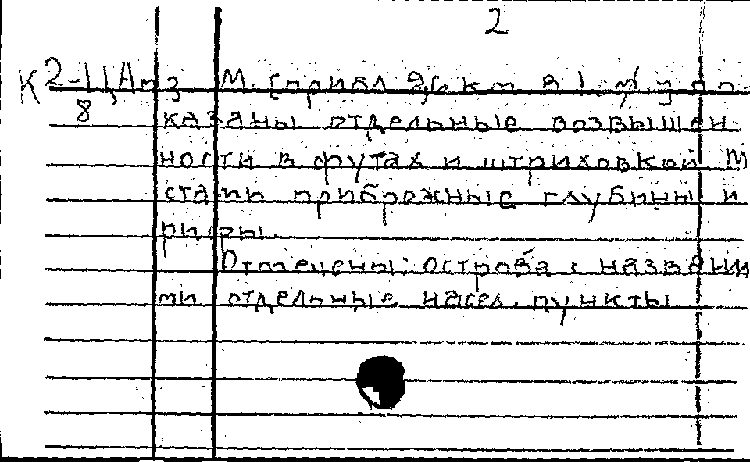 2
К 2-11 М. [прибл. км в 1
8 казаны отдельные возвышен
ности в футах и штриховкой М
стами прибрежные глубины и
рифы.
Отмечены: острова с названия
ми отдельные насел. пункты